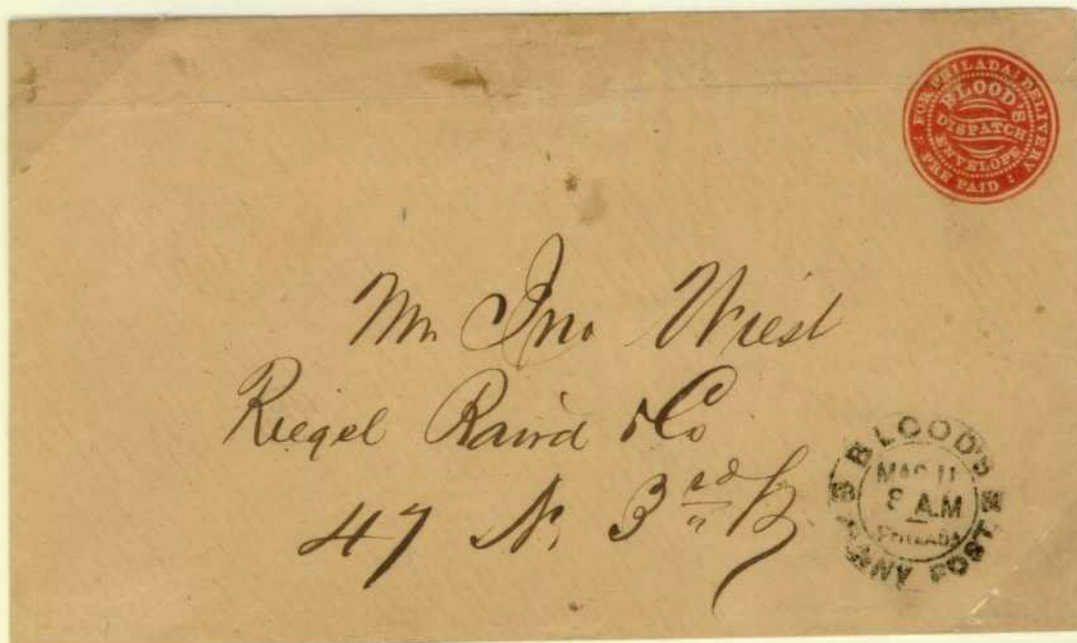 FOR PHILADA: DELIVERY
PRE PAID
BLOOD'S
DISPATCH
ENVELOPE
Mr Jno Wiest
Riegel Baird & Co
47 N. 3rd St
BLOOD'S
PENNY POST
MAR 11
8 A.M
PHILADA